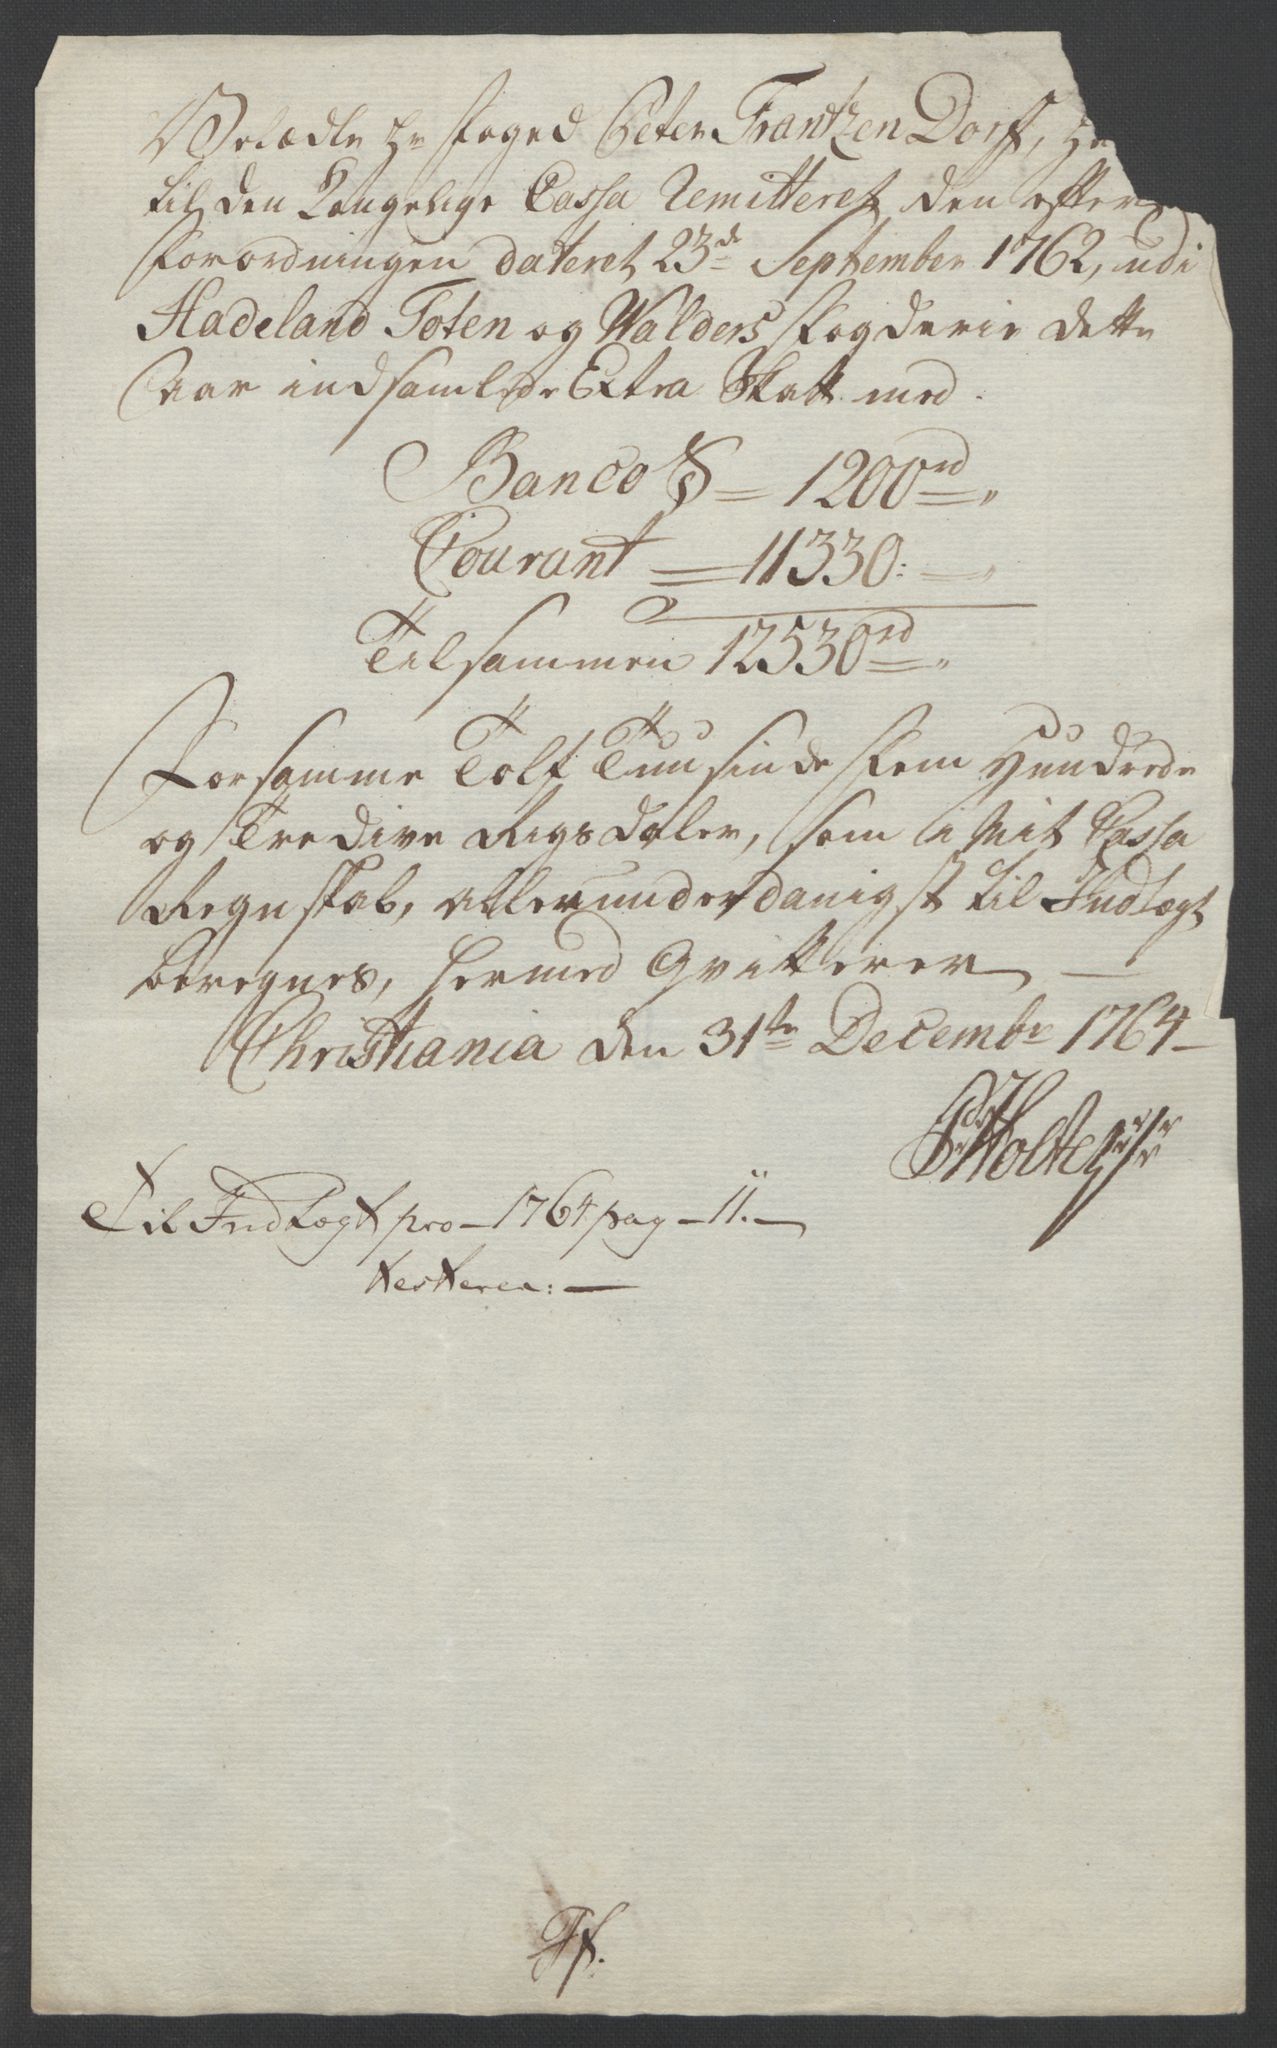 Velædle Hr Foged Peter Frantzen Dorf, Ha
til den Kongelige Cassa Remitteret den efter
Forordningen dateret 23de September 1762, udi
Hadeland Toten og Walders Fogderie dette
Aar indsamlede Extra Skatt med
Banco S = 1200rd = „
Courant = 11330: = „
Tilsammen 12530rd = „
For samme Tolf Tuusinde Fem Hundrede
og Tredive Rigsdaler, som i Mit Cassa
Regnskab, allerunderdanigst til Indtægt
beregnes, hermed Qvitterer —
Christiania den 31te Decembr 1764 —
Holte
Til Indtægt pro – 1764 pag – 11. –
testerer: —